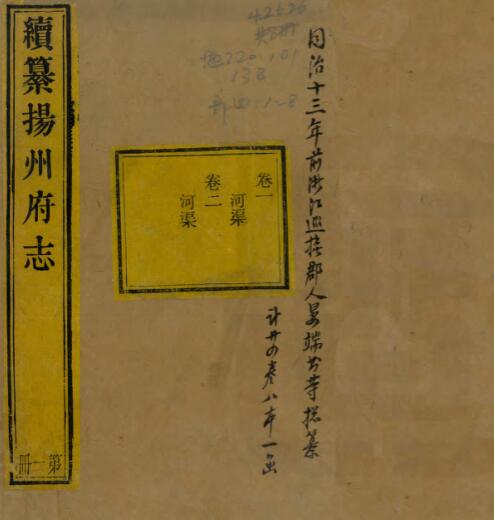 續纂揚州府志
第一冊
卷一
河渠
卷二
河渠
同治十三年前浙江巡撫郡人晏端書等總纂
計廿四卷八本一函
42526
共8冊
地220.101
138